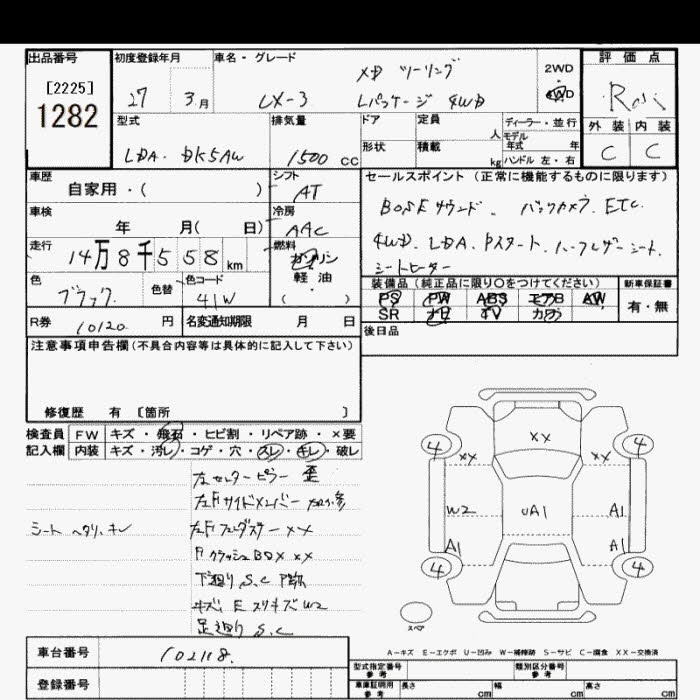 出品番号 初度登録年月 車名・グレード 評価点
[2225]
1282
27 3月 CX-3
XD ツーリング
Lパッケージ 4WD
2WD
4WD
外装 内装
C C
型式 排気量 ドア 定員 人 ディーラー・並行
モデル年式 年
LDA-DK5AW 1500 cc 形状 積載 kg ハンドル 左・右
車歴 自家用・( ) シフト AT
セールスポイント (正常に機能するものに限ります)
BOSEサウンド、バックカメラ、ETC
4WD、LDA、Pスタート、ハーフレザーシート、
シートヒーター
車検 年 月( 日) 冷房 AAC
走行 14万8千558km 燃料 ガソリン
軽油・
( )
色 ブラック 色替 色コード 41W
装備品 (純正品に限り○をつけてください) 新車保証書
PS PW ABS エアB AW 有・無
SR ナビ TV カワ
R券 10120 円 名変通知期限 月 日
後日品
注意事項申告欄 (不具合内容等は具体的に記入して下さい)
修復歴 有 〔箇所 〕
検査員 FW キズ・飛石・ヒビ割・リペア跡・×要
記入欄 内装 キズ・汚レ・コゲ・穴・スレ・キレ・破レ
左センターピラー 歪
左Fサイドメンバー
シート ヘタリ、キレ
左Fフェンダー XX
下廻り S.C
キズ、E スリキズ W2
足廻り S.C
XX
4 XX XX 4
W2 UA1 A1
A1 A1
4 4
スペア
A-キズ E-エクボ U-凹み W-補修跡 S-サビ C-腐食 XX-交換済
車台番号 102118
登録番号
型式指定番号 参考 類別区分番号 参考
車庫証明用 参考 長さ cm 幅 cm 高さ cm